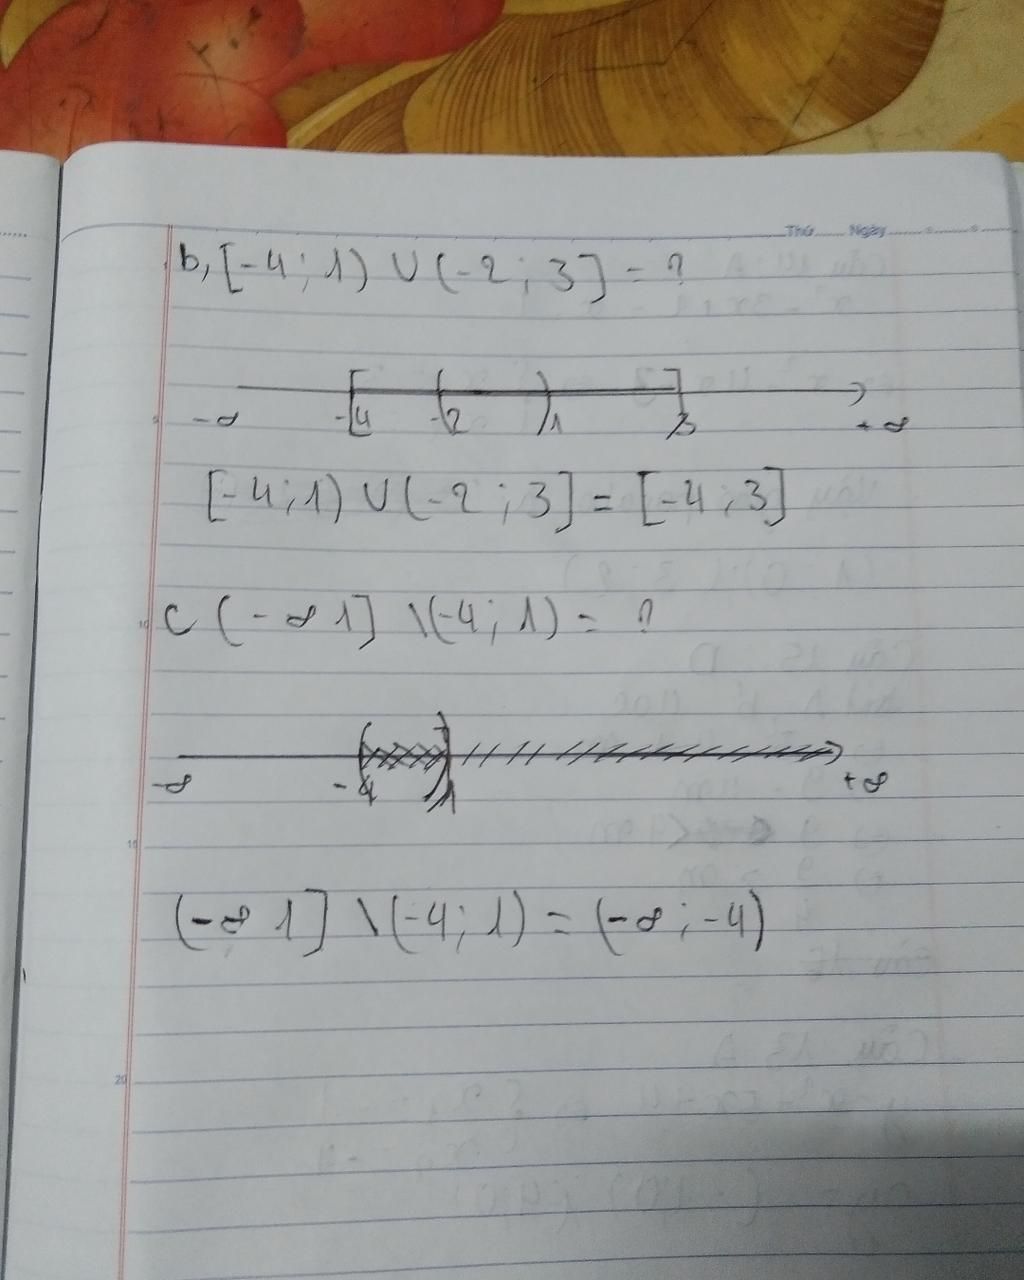 Thứ...... Ngày...............
b, [-4; 1) ∪ (-2; 3] = ?
-∞ -4 -2 1 3 +∞
[-4; 1) ∪ (-2; 3] = [-4; 3]
c (-∞ 1] \ (-4; 1) = ?
-∞ -4 1 +∞
(-∞ 1] \ (-4; 1) = (-∞; -4)